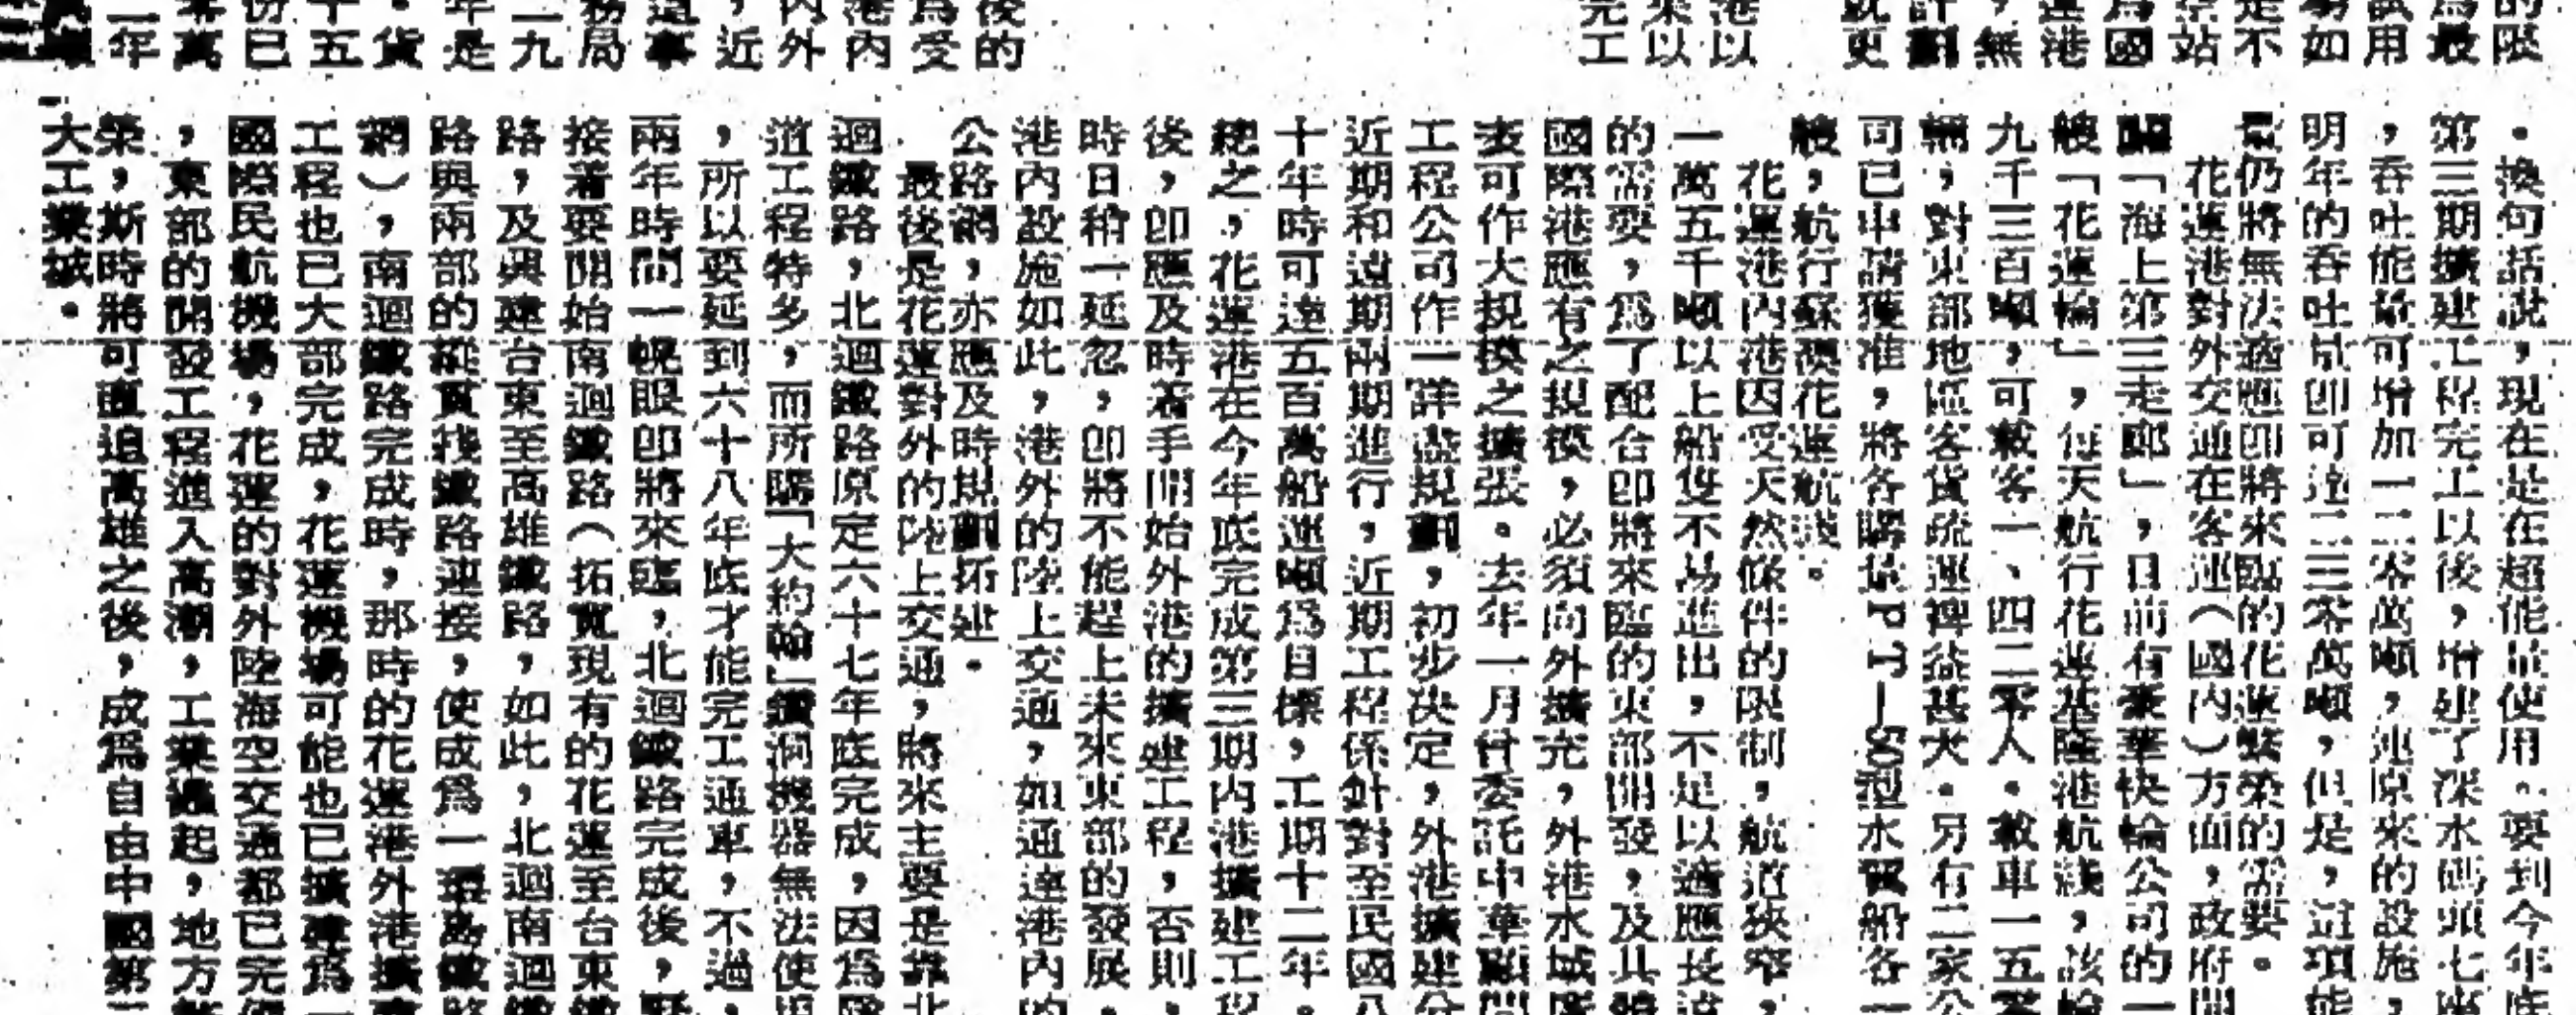 的限
為最
試用
易如
是不
京站
為國
蓮港
，無
計劃
就更
港以
來以
完工
後的
為受
港內
內外
，近
這事
務局
二九
年是
．貨
十五
份已
零萬
一年
．換句話說，現在是在超能量使用．要到今年底
第三期擴建工程完工以後，增建了深水碼頭七座
，吞吐能量可增加一二零萬噸，連原來的設施，
明年的吞吐量即可達二三零萬噸，但是，這項能
量仍將無法適應即將來臨的花蓮繁榮的需要．
花蓮港對外交通在客運（國內）方面，政府開
闢「海上第三走廊」，目前有豪華快輪公司的一
艘「花蓮輪」，每天航行花蓮基隆港航綫，該輪
九千三百噸，可載客一、四二零人．載車一五零
輛，對東部地區客貨疏運裨益甚大．另有二家公
司已申請獲准，將各購量PT—50型水翼船各一
艘，航行蘇澳花蓮航綫．
花蓮港內港因受天然條件的限制，航道狹窄，
一萬五千噸以上船隻不易進出，不足以適應長遠
的需要，為了配合即將來臨的東部開發，及其發
國際港應有之規模，必須向外擴充，外港水域廣
表可作大規模之擴張。去年一月曾委託中華顧問
工程公司作一詳盡規劃，初步決定，外港擴建分
近期和遠期兩期進行，近期工程係針對至民國八
十年時可達五百萬船運噸為目標，工期十二年．
總之，花蓮港在今年底完成第三期內港擴建工程
後，即應及時着手開始外港的擴建工程，否則，
時日稍一延忽，即將不能趕上未來東部的發展．
港內設施如此，港外的陸上交通，如通達港內的
公路網，亦應及時規劃拓建．
最後是花蓮對外的陸上交通，將來主要是靠北
迴鐵路，北迴鐵路原定六十七年底完成，因為隧
道工程特多，而所購「大約翰」鑽洞機器無法使用
，所以要延到六十八年底才能完工通車，不過，
兩年時間一幌眼即將來臨，北迴鐵路完成後，緊
接着要開始南迴鐵路（拓寬現有的花蓮至台東鐵
路，及興建台東至高雄鐵路，如此，北迴南迴鐵
路與兩部的縱貫綫鐵路連接，使成為一環島鐵路
網），南迴鐵路完成時，那時的花蓮港外港擴建
工程也已大部完成，花蓮機場可能也已擴建為一
國際民航機場，花蓮的對外陸海空交通都已完備
，東部的開發工程進入高潮，工業遍起，地方繁
榮，斯時將可直追高雄之後，成為自由中國第二
大工業城．